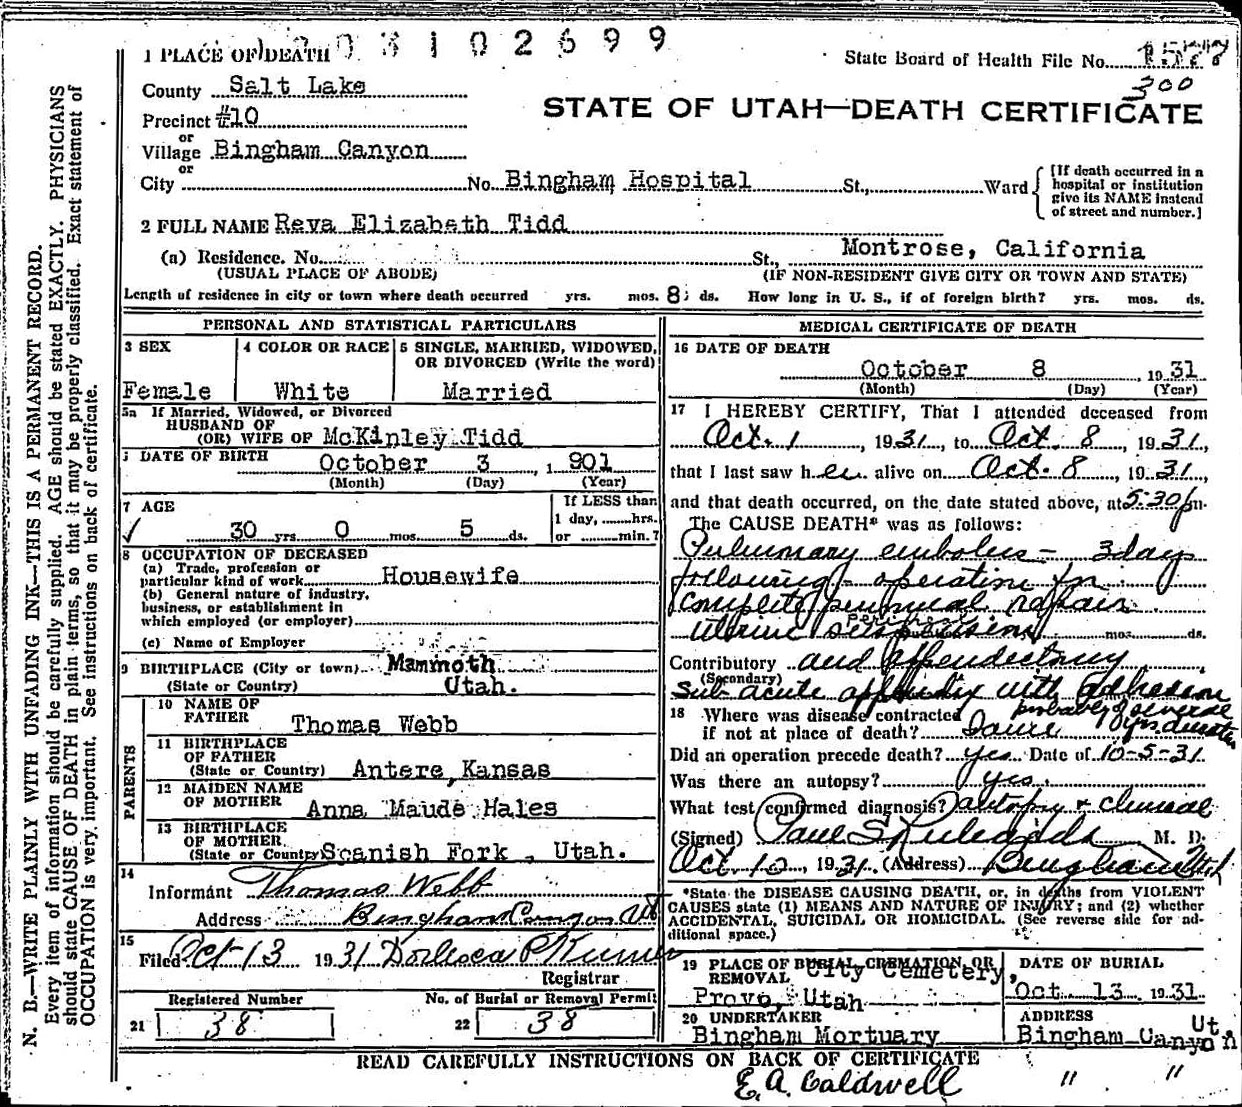 1 PLACE OF DEATH 3 1 0 2 6 9 9
State Board of Health File No. 1577
300
County Salt Lake
STATE OF UTAH—DEATH CERTIFICATE
Precinct #10
or
Village Bingham Canyon
or
City No. Bingham Hospital St., Ward
[If death occurred in a
hospital or institution
give its NAME instead
of street and number.]
2 FULL NAME Reva Elizabeth Tidd
(a) Residence. No. St., Montrose, California
(USUAL PLACE OF ABODE) (IF NON-RESIDENT GIVE CITY OR TOWN AND STATE)
Length of residence in city or town where death occurred yrs. mos. 8 ds. How long in U. S., if of foreign birth? yrs. mos. ds.
PERSONAL AND STATISTICAL PARTICULARS
3 SEX 4 COLOR OR RACE 5 SINGLE, MARRIED, WIDOWED,
OR DIVORCED (Write the word)
Female White Married
5a If Married, Widowed, or Divorced
HUSBAND OF
(OR) WIFE OF McKinley Tidd
DATE OF BIRTH October 3, 1901
(Month) (Day) (Year)
7 AGE If LESS than
1 day, hrs.
✓ 30 yrs. 0 mos. 5 ds. or min.?
8 OCCUPATION OF DECEASED
(a) Trade, profession or
particular kind of work Housewife
(b) General nature of industry,
business, or establishment in
which employed (or employer)
(c) Name of Employer
9 BIRTHPLACE (City or town) Mammoth
(State or Country) Utah.
PARENTS
10 NAME OF
FATHER Thomas Webb
11 BIRTHPLACE
OF FATHER
(State or Country) Antere, Kansas
12 MAIDEN NAME
OF MOTHER Anna Maude Hales
13 BIRTHPLACE
OF MOTHER
(State or Country) Scanish Fork, Utah.
14
Informant Thomas Webb
Address Bingham Canyon Ut
15
Filed Oct-13 1931
Registrar
Registered Number No. of Burial or Removal Permit
21 38 22 38
MEDICAL CERTIFICATE OF DEATH
16 DATE OF DEATH
October 8, 1931
(Month) (Day) (Year)
17 I HEREBY CERTIFY, That I attended deceased from
Oct. 1, 1931, to Oct. 8, 1931,
that I last saw her alive on Oct. 8, 1931,
and that death occurred, on the date stated above, at 5:30 p m.
The CAUSE DEATH* was as follows:
Pulmonary embolus - 3 day
following operation for
complete perineal repair
uterine suspension mos. ds.
Contributory and appendectomy
(Secondary)
Sub acute appendix with adhesion
18 Where was disease contracted probably of several
if not at place of death? yrs. duration
Did an operation precede death? yes Date of 10-5-31
Was there an autopsy? yes.
What test confirmed diagnosis? autopsy & clinical
(Signed) Paul S. Richards M. D.
Oct 10, 1931. (Address) Bingham Utah
*State the DISEASE CAUSING DEATH, or, in deaths from VIOLENT
CAUSES state (1) MEANS AND NATURE OF INJURY; and (2) whether
ACCIDENTAL, SUICIDAL OR HOMICIDAL. (See reverse side for ad-
ditional space.)
19 PLACE OF BURIAL, CREMATION, OR
REMOVAL City Cemetery,
Provo, Utah
DATE OF BURIAL
Oct. 13 1931.
20 UNDERTAKER
Bingham Mortuary
ADDRESS
Bingham Canyon Ut
READ CAREFULLY INSTRUCTIONS ON BACK OF CERTIFICATE
E. A. Caldwell " "
N. B.—WRITE PLAINLY WITH UNFADING INK—THIS IS A PERMANENT RECORD.
Every item of information should be carefully supplied. AGE should be stated EXACTLY. PHYSICIANS
should state CAUSE OF DEATH in plain terms, so that it may be properly classified. Exact statement of
OCCUPATION is very important. See instructions on back of certificate.